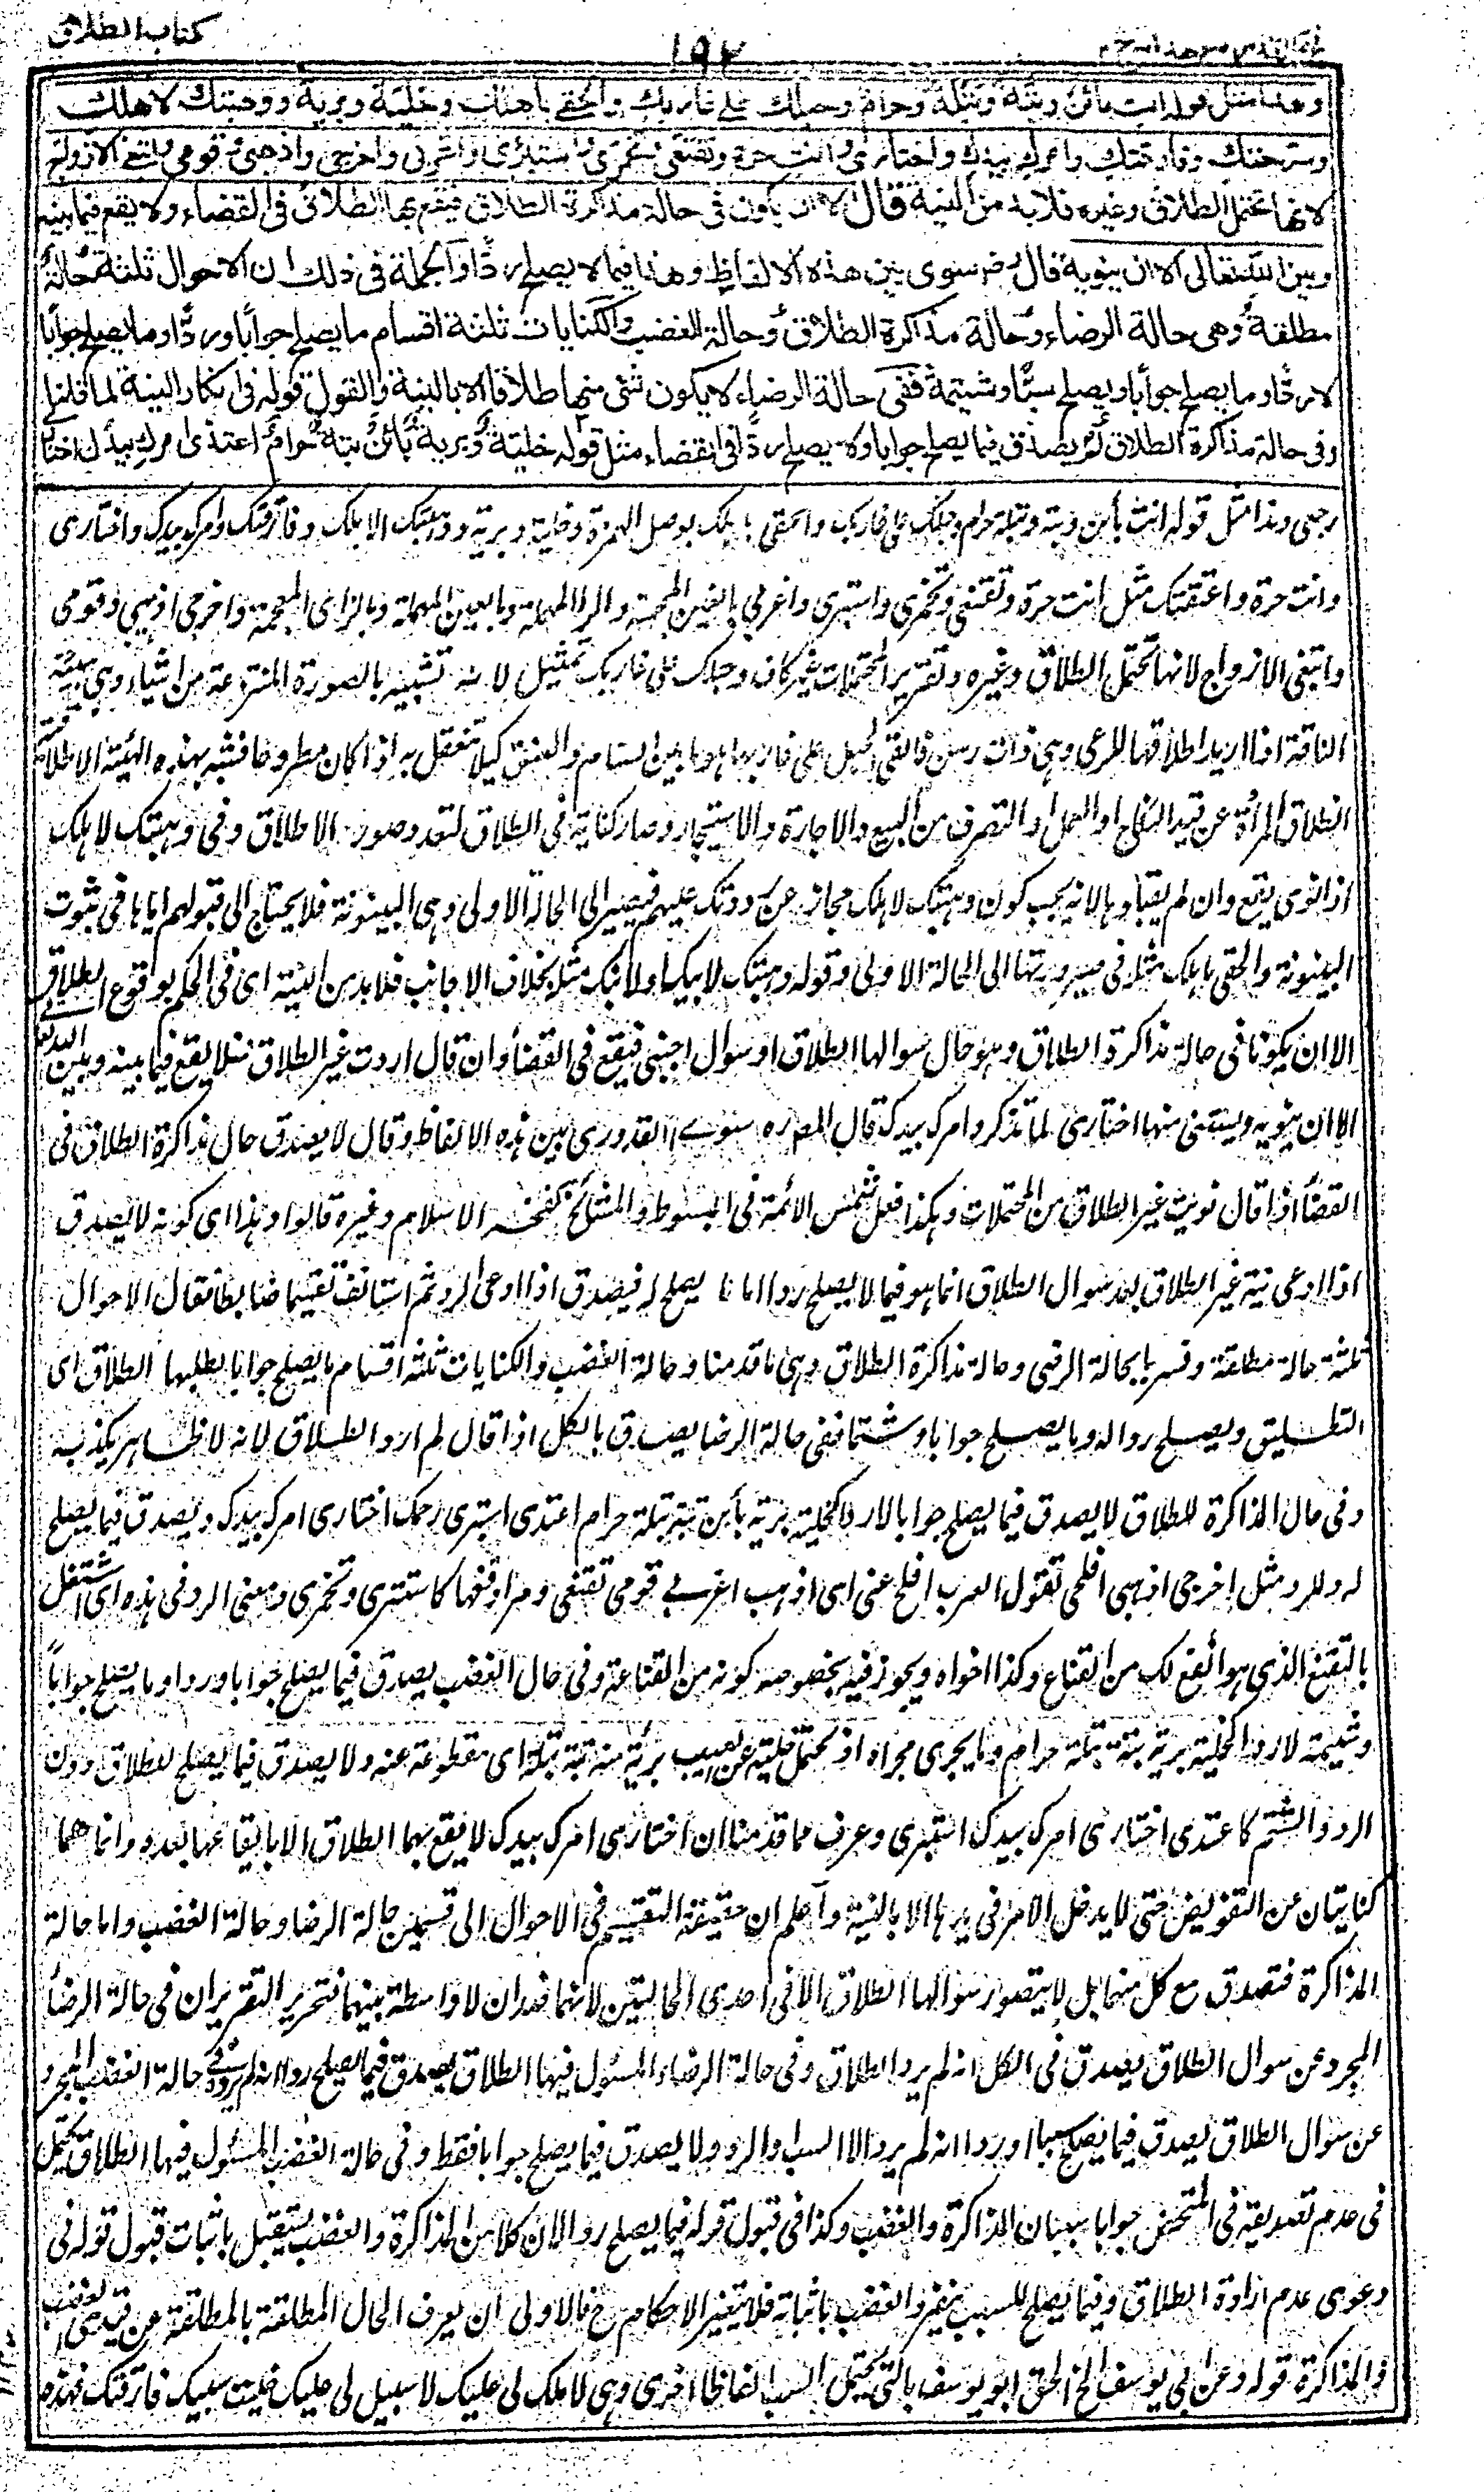 كتاب الطلاق
١٩٢
وهذا مثل قوله انت بائن وبتة وبتلة وحرام وحبلك على غاربك والحقي باهلك وخلية وبرية ووهبتك لاهلك
وسرحتك وفارقتك وامرك بيدك واختاري وانت حرة وتقنعي وتخمري واستتري واغربي واخرجي واذهبي وقومي وابتغي الازواج
لانها تحتمل الطلاق وغيره فلابد من النية قال الا ان يكون في حالة مذاكرة الطلاق فيقع بها الطلاق في القضاء ولا يقع فيما بينه
وبين الله تعالى الا ان ينويه قال رض سوى بين هذه الالفاظ وهذا فيما لا يصلح ردًّا والجملة في ذلك ان الاحوال ثلثة حالة
مطلقة وهي حالة الرضاء وحالة مذاكرة الطلاق وحالة الغضب والكنايات ثلثة اقسام ما يصلح جوابًا وردًّا وما يصلح جوابا
لا ردًّا وما يصلح جوابا ويصلح سبًّا وشتيمة ففي حالة الرضاء لا يكون شئ منها طلاقا الا بالنية والقول قوله في انكار النية لما قلنا
وفي حالة مذاكرة الطلاق لم يصدق فيما يصلح جوابا ولا يصلح ردًّا في القضاء مثل قوله خلية وبرية بائن بتة حرام اعتدي امرك بيدك اختاري
رجعي وهذا مثل قوله انت بائن وبتة وبتلة حرام وحبلك على غاربك والحقي باهلك بوصل الهمزة وخلية وبرية ووهبتك لاهلك وفارقتك وامرك بيدك واختاري
وانت حرة واعتقتك مثل انت حرة وتقنعي وتخمري واستتري واغربي بالغين المعجمة والراء المهملة وبالعين المهملة وبالزاي المعجمة واخرجي اذهبي وقومي
وابتغي الازواج لانها تحتمل الطلاق وغيره وتقرير المحتملات غير خاف وحبلك على غاربك تمثيل لانه تشبيه بالصورة المنتزعة من اشياء وهي هيئة
الناقة اذا اريد اطلاقها للرعي وهي ذات رسن فالقي الحبل على غاربها وهو ما بين السنام والعنق كيلا تتعقل به اذا كان مطروحا فشبه بهذه الهيئة الاطلاقية
انطلاق المرأة عن قيد النكاح او العمل او التصرف من البيع والاجارة والاستيجار وصار كناية في الطلاق لتعدد صور الاطلاق وفي وهبتك لاهلك
اذا نوى يقع وان لم يقبلوها لانه يجب كون وهبتك لاهلك مجازا عن رددتك عليهم فيصير الى الحالة الاولى وهي البينونة فلا يحتاج الى قبولهم اياها في ثبوت
البينونة والحقي باهلك مثله في صيرورتها الى الحالة الاولى وقوله وهبتك لابيك او لابنك مثله بخلاف الاجانب فلابد من النية اى في الحكم بوقوع الطلاق
الا ان يكونا في حالة مذاكرة الطلاق وهو حال سوالها الطلاق او سوال اجنبي فيقع في القضاء وان قال اردت غير الطلاق فلا يقع فيما بينه وبين الله تعالى
الا ان ينويه ويستثنى منها اختاري لما نذكر وامرك بيدك قال المصره سوى القدوري بين هذه الالفاظ وقال لا يصدق حال مذاكرة الطلاق في
القضاء اذا قال نويت غير الطلاق من المحتملات وهكذا فعل شمس الائمة في المبسوط والمشائخ كفخر الاسلام وغيره قالوا وهذا اى كونه لا يصدق
اذا ادعى نية غير الطلاق بعد سوال الطلاق انما هو فيما لا يصلح ردا اما ما يصلح له فيصدق اذا ادعى الرد ثم استانف تقسيما ضابطا فقال الاحوال
ثلثة حالة مطلقة وفسرها بحالة الرضى وحالة مذاكرة الطلاق وهي ما قدمنا وحالة الغضب والكنايات ثلثة اقسام ما يصلح جوابا لطلبها الطلاق اى
التطليق ويصلح ردا له وما يصلح جوابا وشتما ففي حالة الرضا يصدق بالكل اذا قال لم ارد الطلاق لانه لا ظاهر يكذبه
وفي حال المذاكرة للطلاق لا يصدق فيما يصلح جوابا لا ردا كخلية برية بائن بتة بتلة حرام اعتدي استبري رحمك اختاري امرك بيدك ويصدق فيما يصلح
له وللرد مثل اخرجي اذهبي افلحي تقول العرب افلح عني اى اذهب اغربي قومي تقنعي ومرادفها كاستتري وتخمري ومعنى الرد في هذه اى اشتغلي
بالتقنع الذي هو انفع لك من القناع وكذا اخواه ويجوز فيه بخصوصه كونه من القناعة وفي حال الغضب يصدق فيما يصلح جوابا وردا وما يصلح جوابا
وشتيمة لا ردا كخلية برية بتة بتلة حرام وما يجري مجراه اذ يحتمل خلية عن العيب برية منه بتة بتلة اى مقطوعة عنه ولا يصدق فيما يصلح للطلاق دون
الرد والشتم كاعتدي اختاري امرك بيدك استبري وعرف مما قدمنا ان اختاري امرك بيدك لا يقع بهما الطلاق الا بايقاعها بعده وانما هما
كنايتان عن التفويض حتى لا يدخل الامر في يدها الا بالنية واعلم ان حقيقة التقسيم في الاحوال الى قسمين حالة الرضا وحالة الغضب واما حالة
المذاكرة فتصدق مع كل منهما بل لا يتصور سوالها الطلاق الا في احدى الحالتين لانهما ضدان لا واسطة بينهما فتحرير التقرير ان في حالة الرضا
المجرد عن سوال الطلاق يصدق في الكل انه لم يرد الطلاق وفي حالة الرضاء المسئول فيها الطلاق يصدق فيما يصلح ردا انه لم يرده وفي حالة الغضب المجرد
عن سوال الطلاق يصدق فيما يصلح سبا او ردا انه لم يرد الا السب او الرد ولا يصدق فيما يصلح جوابا فقط وفي حالة الغضب المسئول فيها الطلاق يجتمع
في عدم تصديقه في المتمحض جوابا سببان المذاكرة والغضب وكذا في قبول قوله فيما يصلح ردا لان كلا من المذاكرة والغضب يستقل باثبات قبول قوله في
دعوى عدم ارادة الطلاق وفيما يصلح للسب ينفرد الغضب باثباته فلا تتغير الاحكام ح فالاولى ان يعرف الحال المطلقة بالمطلقة عن قيدي الغضب
والمذاكرة قوله وعن ابي يوسف الخ الحق ابو يوسف بالتي تحتمل السب الفاظا اخرى وهي لا ملك لي عليك لا سبيل لي عليك خليت سبيلك فارقتك فهذه